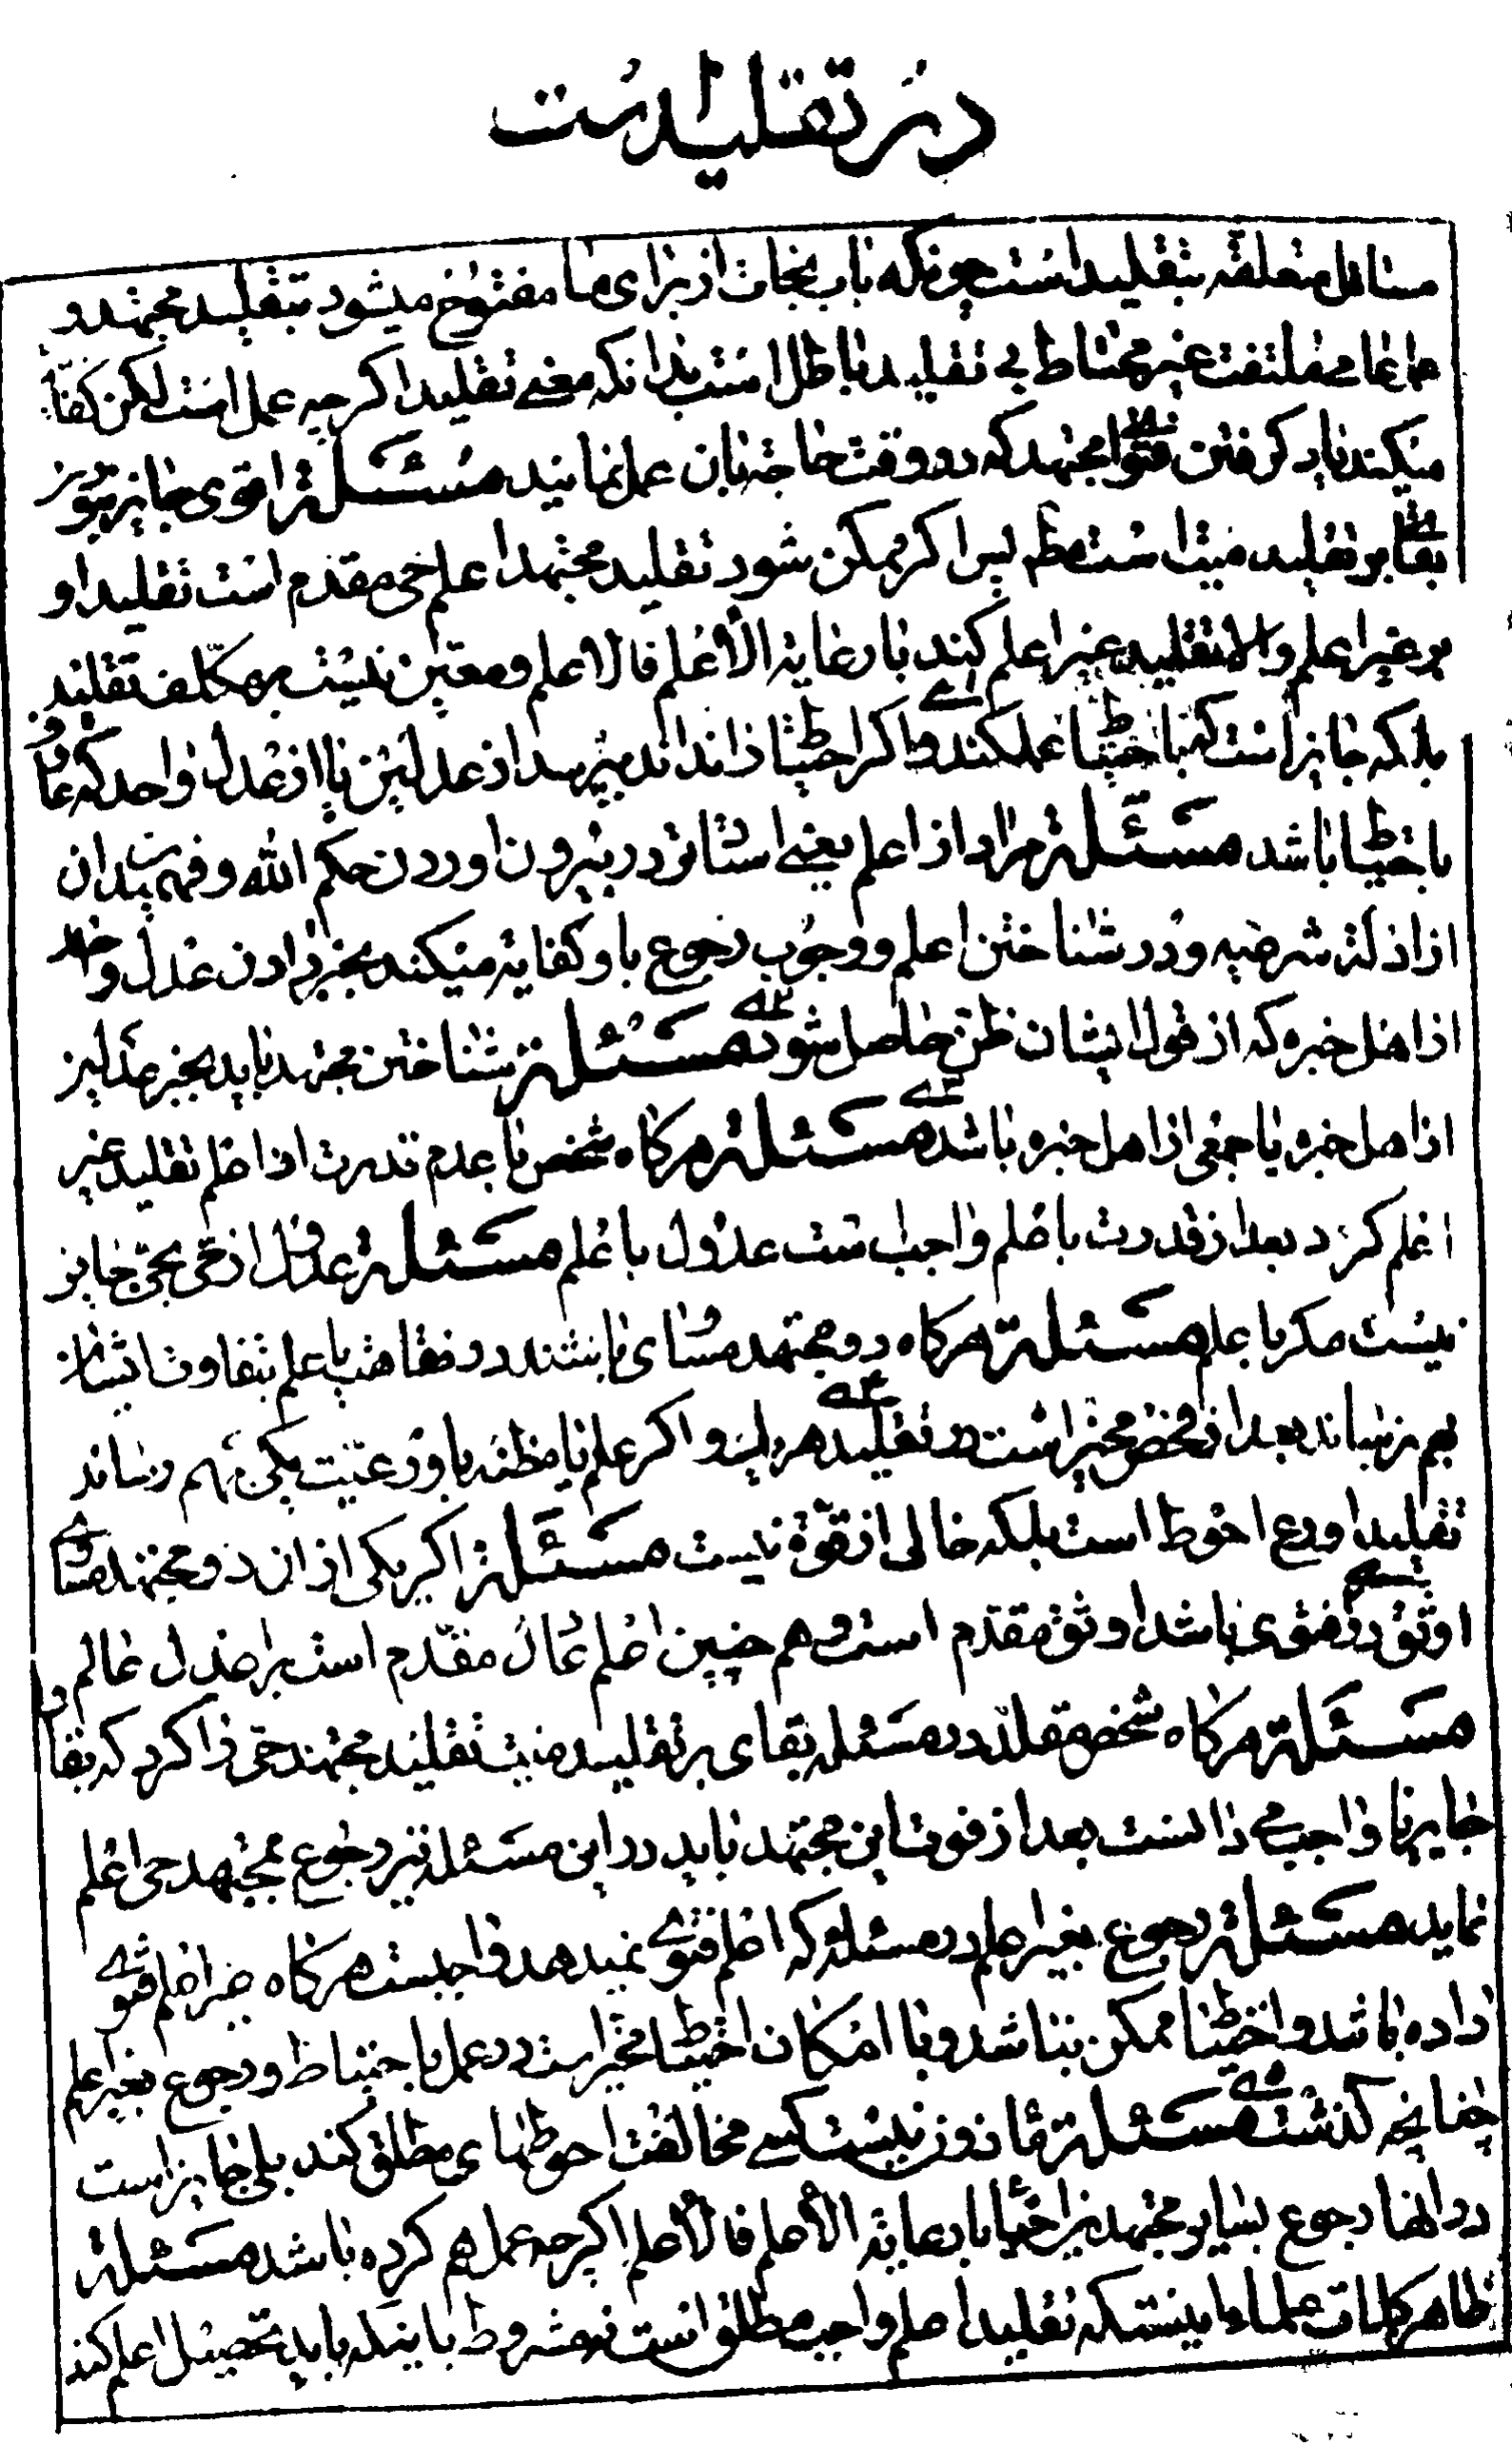 در تقلید است
مسائل متعلقه بتقلید است چونکه باب نجات از برای ما مفتوح میشود بتقلید مجتهد و
عمل عامی ملتفت غیر محتاط بی تقلید باطل است بدانکه معنی تقلید اکرچه عمل است لکن کفایت
میکند یاد کرفتن فتوای مجتهد که در وقت حاجة بان عمل نماید مسئلة اقوی جایز بودن
بقای بر تقلید میت است مطم پس اکر ممکن شود تقلید مجتهد اعلم حی مقدم است تقلید او
بر غیر اعلم والا تقلید غیر اعلم کند با رعایة الأعلم فالاعلم و معین نیست بر مکلف تقلید
بلکه جایز است که باحتیاط عمل کند و اکر احتیاط را نداند بپرسد از عدلین یا از عدل واحد که عارف
باحتیاط باشد مسئلة مراد از اعلم یعنی استاتر در بیرون اوردن حکم الله و فهمیدن ان
از ادلة شرعیه و در شناختن اعلم و وجوب رجوع باو کفایة میکند بخبر دادن عدل واحد
از اهل خبره که از قول ایشان ظن حاصل شود مسئلة شناختن مجتهد باید بخبر عدلین
از اهل خبره یا جمعی از اهل خبره باشد مسئلة هرکاه شخص با عدم قدرت از اعلم تقلید غیر
اعلم کرد بعد از قدرت باعلم واجب است عدول باعلم مسئلة عدول از حی بحی جایز
نیست مکر باعلم مسئلة هرکاه دو مجتهد مساوی باشند در فقاهت یا علم بتفاوت ایشان
بهم نرساند بعد از فحص مخیر است در تقلید هریک و اکر علم یا مظنه باورعیت یکی بهم رساند
تقلید اورع احوط است بلکه خالی از قوّة نیست مسئلة اکر یکی از ان دو مجتهد مساوی
اوثق در فتوی باشد اوثق مقدم است و هم چنین اعلم عادل مقدم است بر اعدل عالم
مسئلة هرکاه شخص مقلد در مسئله بقای بر تقلید میت تقلید مجتهد حی را کرد که بقا را
جایز یا واجب می دانست بعد از فوت این مجتهد باید در این مسئله نیز رجوع بمجتهد حی اعلم
نماید مسئلة رجوع بغیر اعلم در مسئلة که اعلم فتوی نمیدهد واجبست هرکاه غیر اعلم فتوی
داده باشد و احتیاط ممکن نباشد و با امکان احتیاط مخیر است در عمل باحتیاط و رجوع بغیر اعلم
چنانچه کذشت مسئلة ماذون نیست کسی مخالفت احوطهای مطلق کند بلی جایز است
در انها رجوع بسایر مجتهدین احیا با رعایة الأعلم فالأعلم اکرچه عمل هم کرده باشد مسئلة
ظاهر کلمات علماء اینستکه تقلید اعلم واجب مطلق است نه مشروط باینکه باید تحصیل اعلم کند